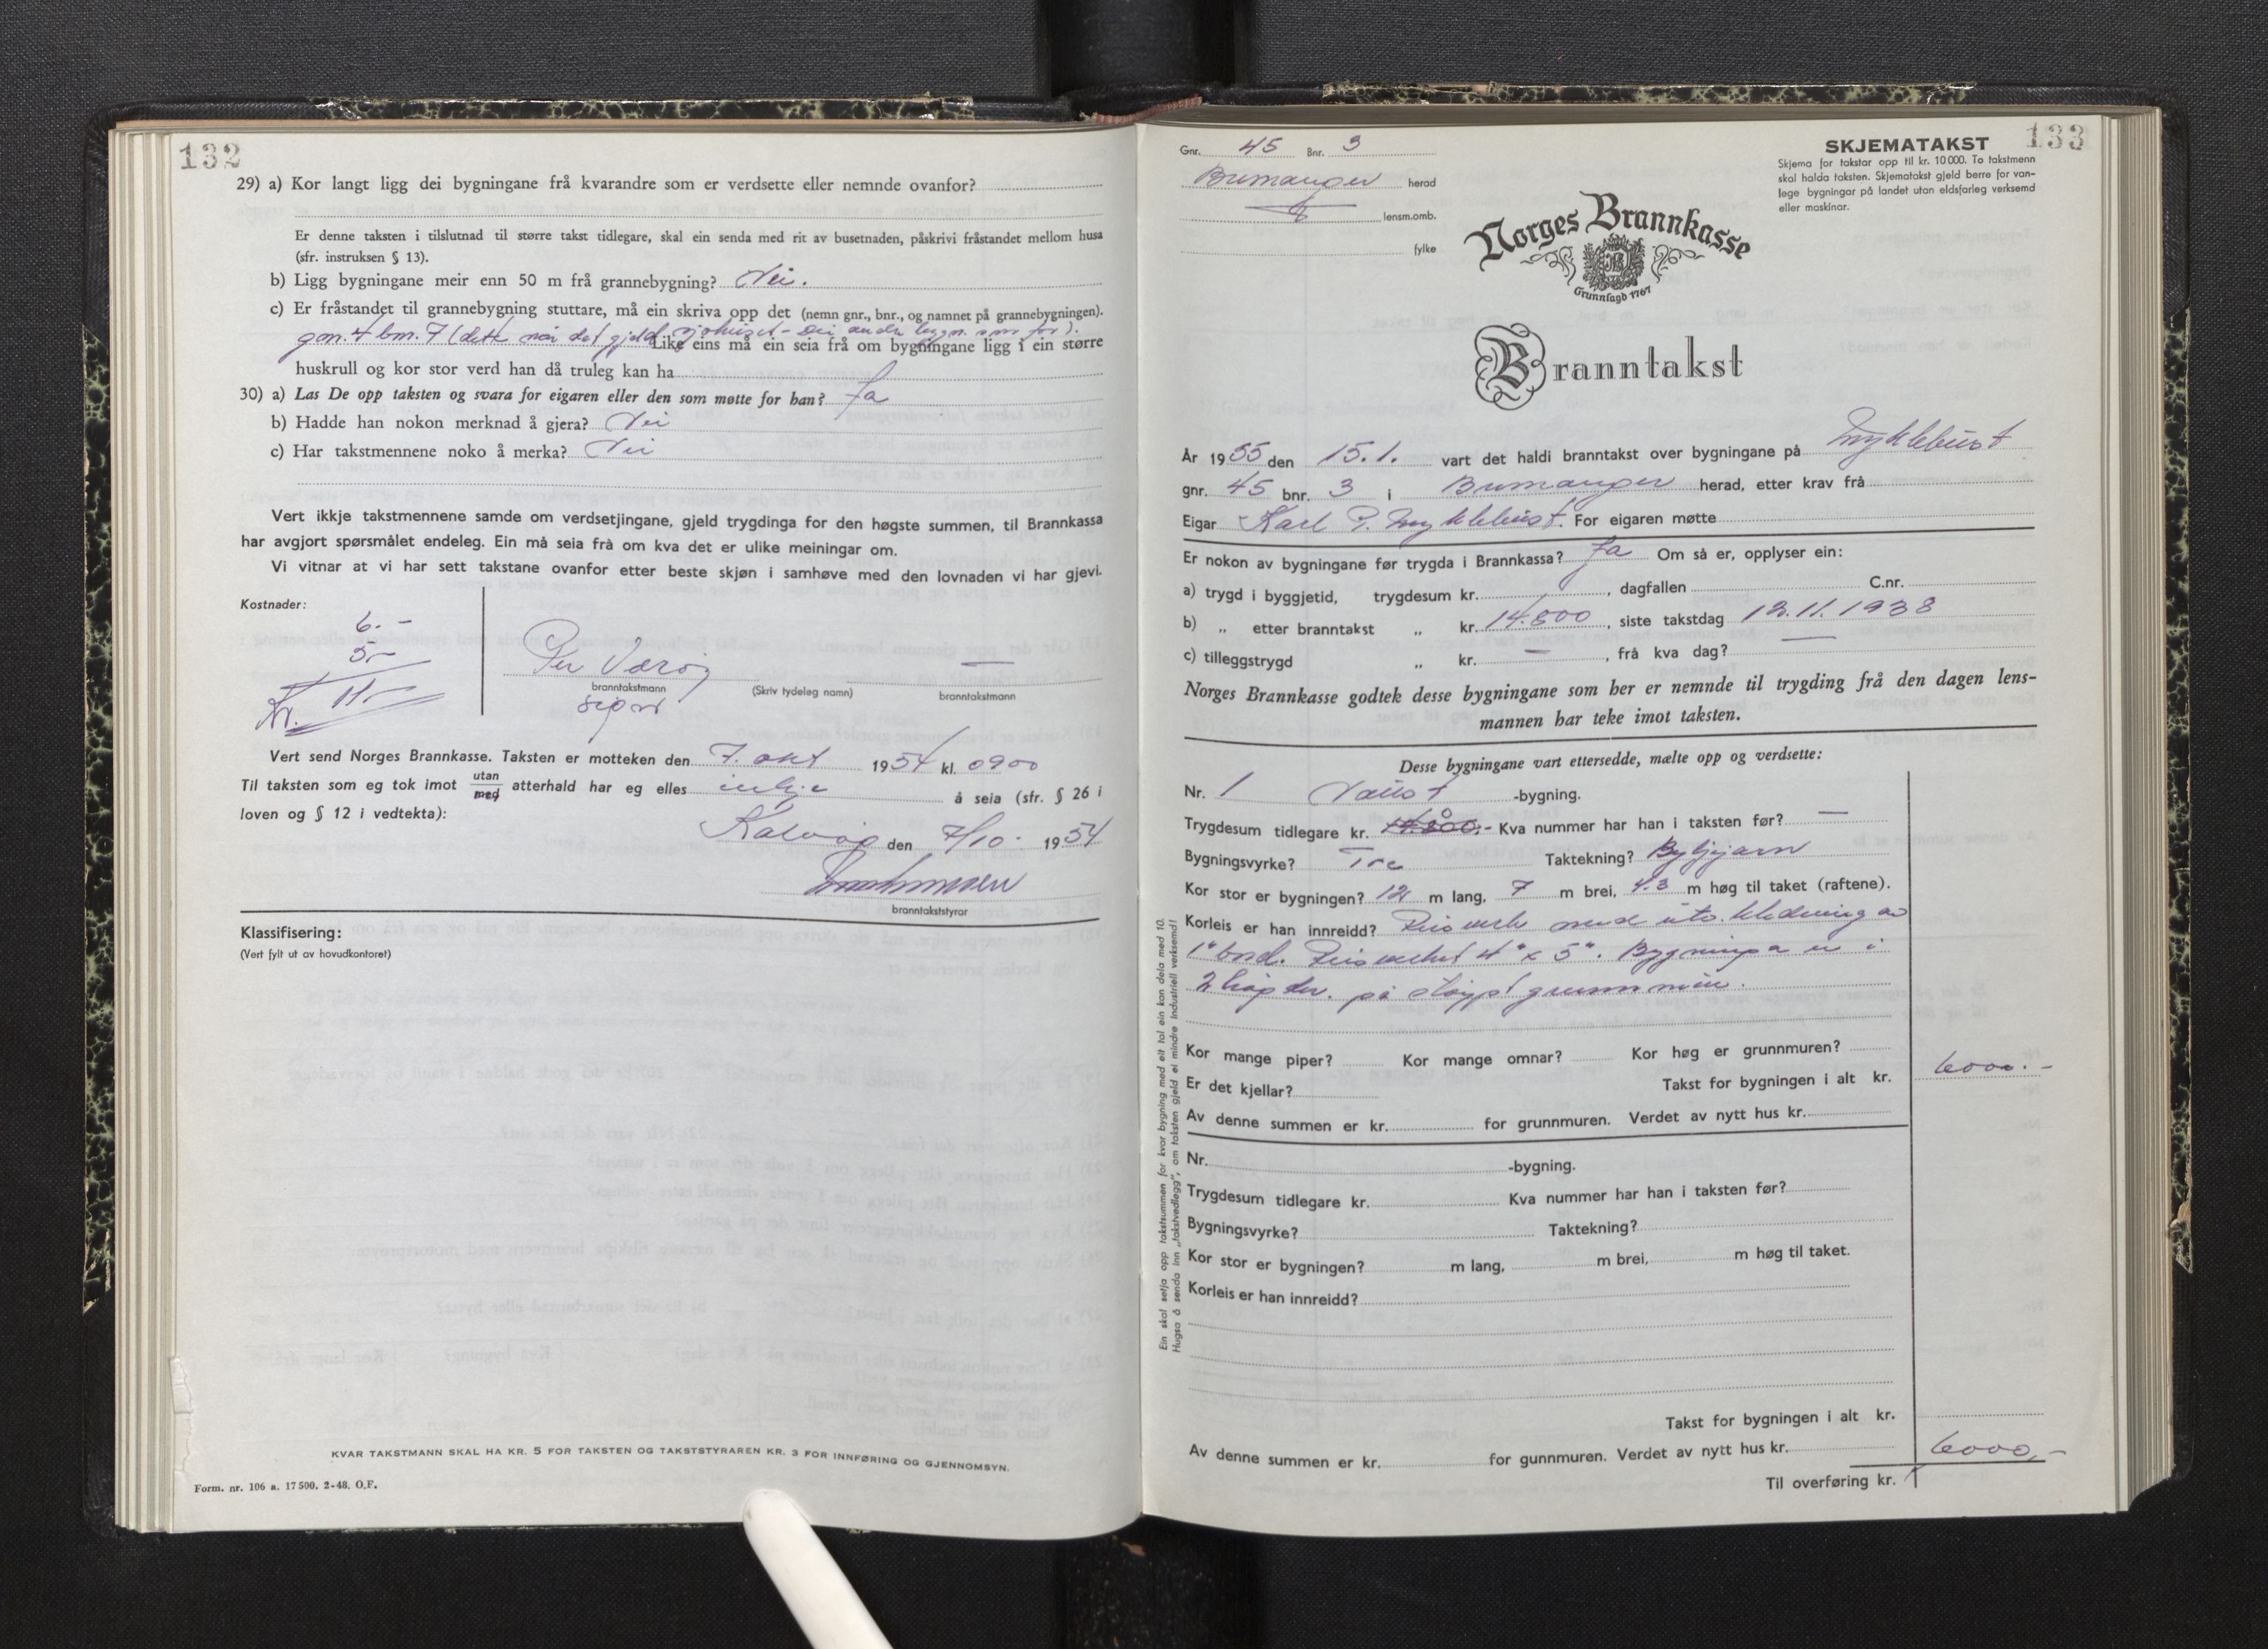 132
29) a) Kor langt ligg dei bygningane frå kvarandre som er verdsette eller nemnde ovanfor?
Er denne taksten i tilslutnad til større takst tidlegare, skal ein senda med rit av busetnaden, påskrivi fråstandet mellom husa
(sfr. instruksen § 13).
b) Ligg bygningane meir enn 50 m frå grannebygning? Nei.
c) Er fråstandet til grannebygning stuttare, må ein skriva opp det (nemn gnr., bnr., og namnet på grannebygningen).
gnr. 4 bnr. 7 (dette når det gjeld sjøhuset - Dei andre bygn. som før).
Like eins må ein seia frå om bygningane ligg i ein større
huskrull og kor stor verd han då truleg kan ha
30) a) Las De opp taksten og svara for eigaren eller den som møtte for han? Ja
b) Hadde han nokon merknad å gjera? Nei
c) Har takstmennene noko å merka? Nei
Vert ikkje takstmennene samde om verdsetjingane, gjeld trygdinga for den høgste summen, til Brannkassa
har avgjort spørsmålet endeleg. Ein må seia frå om kva det er ulike meiningar om.
Vi vitnar at vi har sett takstane ovanfor etter beste skjøn i samhøve med den lovnaden vi har gjevi.
Kostnader:
6.-
5-
Kr. 11-
Per Varøy —
branntakstmann (Skriv tydeleg namn) branntakstmann
sign
Vert send Norges Brannkasse. Taksten er motteken den 7. okt 1954 kl. 0900
Til taksten som eg tok imot utan/med atterhald har eg elles inkje å seia (sfr. § 26 i
loven og § 12 i vedtekta):
Kalvåg den 7/10. 1954
branntakststyrar
Klassifisering:
(Vert fylt ut av hovudkontoret)
KVAR TAKSTMANN SKAL HA KR. 5 FOR TAKSTEN OG TAKSTSTYRAREN KR. 3 FOR INNFØRING OG GJENNOMSYN.
Form. nr. 106 a. 17500. 2-48. O.F.
133
Gnr. 45 Bnr. 3
Bremanger herad
lensm.omb.
fylke
SKJEMATAKST
Skjema for takstar opp til kr. 10 000. To takstmenn
skal halda taksten. Skjematakst gjeld berre for van-
lege bygningar på landet utan eldsfarleg verksemd
eller maskinar.
Norges Brannkasse
Grunnlagd 1767
Branntakst
År 1955 den 15.1. vart det haldi branntakst over bygningane på Myklebust
gnr. 45 bnr. 3 i Bremanger herad, etter krav frå
Eigar Karl P. Myklebust. For eigaren møtte
Er nokon av bygningane før trygda i Brannkassa? Ja Om så er, opplyser ein:
a) trygd i byggjetid, trygdesum kr. , dagfallen C.nr.
b) „ etter branntakst „ kr. 14.800, siste takstdag 12.11.1938
c) tilleggstrygd „ kr. — , frå kva dag? —
Norges Brannkasse godtek desse bygningane som her er nemnde til trygding frå den dagen lens-
mannen har teke imot taksten.
Desse bygningane vart ettersedde, mælte opp og verdsette:
Nr. 1 Naust -bygning.
Trygdesum tidlegare kr. 14.800.- Kva nummer har han i taksten før? —
Bygningsvyrke? Tre Taktekning? Bylgjejarn
Kor stor er bygningen? 12 m lang, 7 m brei, 4.3 m høg til taket (raftene).
Korleis er han innreidd? Reisverk med utv. kledning av
1" bord. Reisverket 4" x 5". Bygninga er i
2 høgder. på støypt grunnmur.
Kor mange piper? Kor mange omnar? Kor høg er grunnmuren?
Er det kjellar? Takst for bygningen i alt kr. 6000.-
Av denne summen er kr. for grunnmuren. Verdet av nytt hus kr.
Nr. -bygning.
Trygdesum tidlegare kr. Kva nummer har han i taksten før?
Bygningsvyrke? Taktekning?
Kor stor er bygningen? m lang, m brei, m høg til taket.
Korleis er han innreidd?
Takst for bygningen i alt kr.
Av denne summen er kr. for gunnmuren. Verdet av nytt hus kr.
Til overføring kr. 6000,-
Ein skal setja opp takstsummen for kvar bygning med eit tal ein kan dela med 10.
Hugsa å senda inn „takstvedlegg", om taksten gjeld ei mindre industriell verksemd!